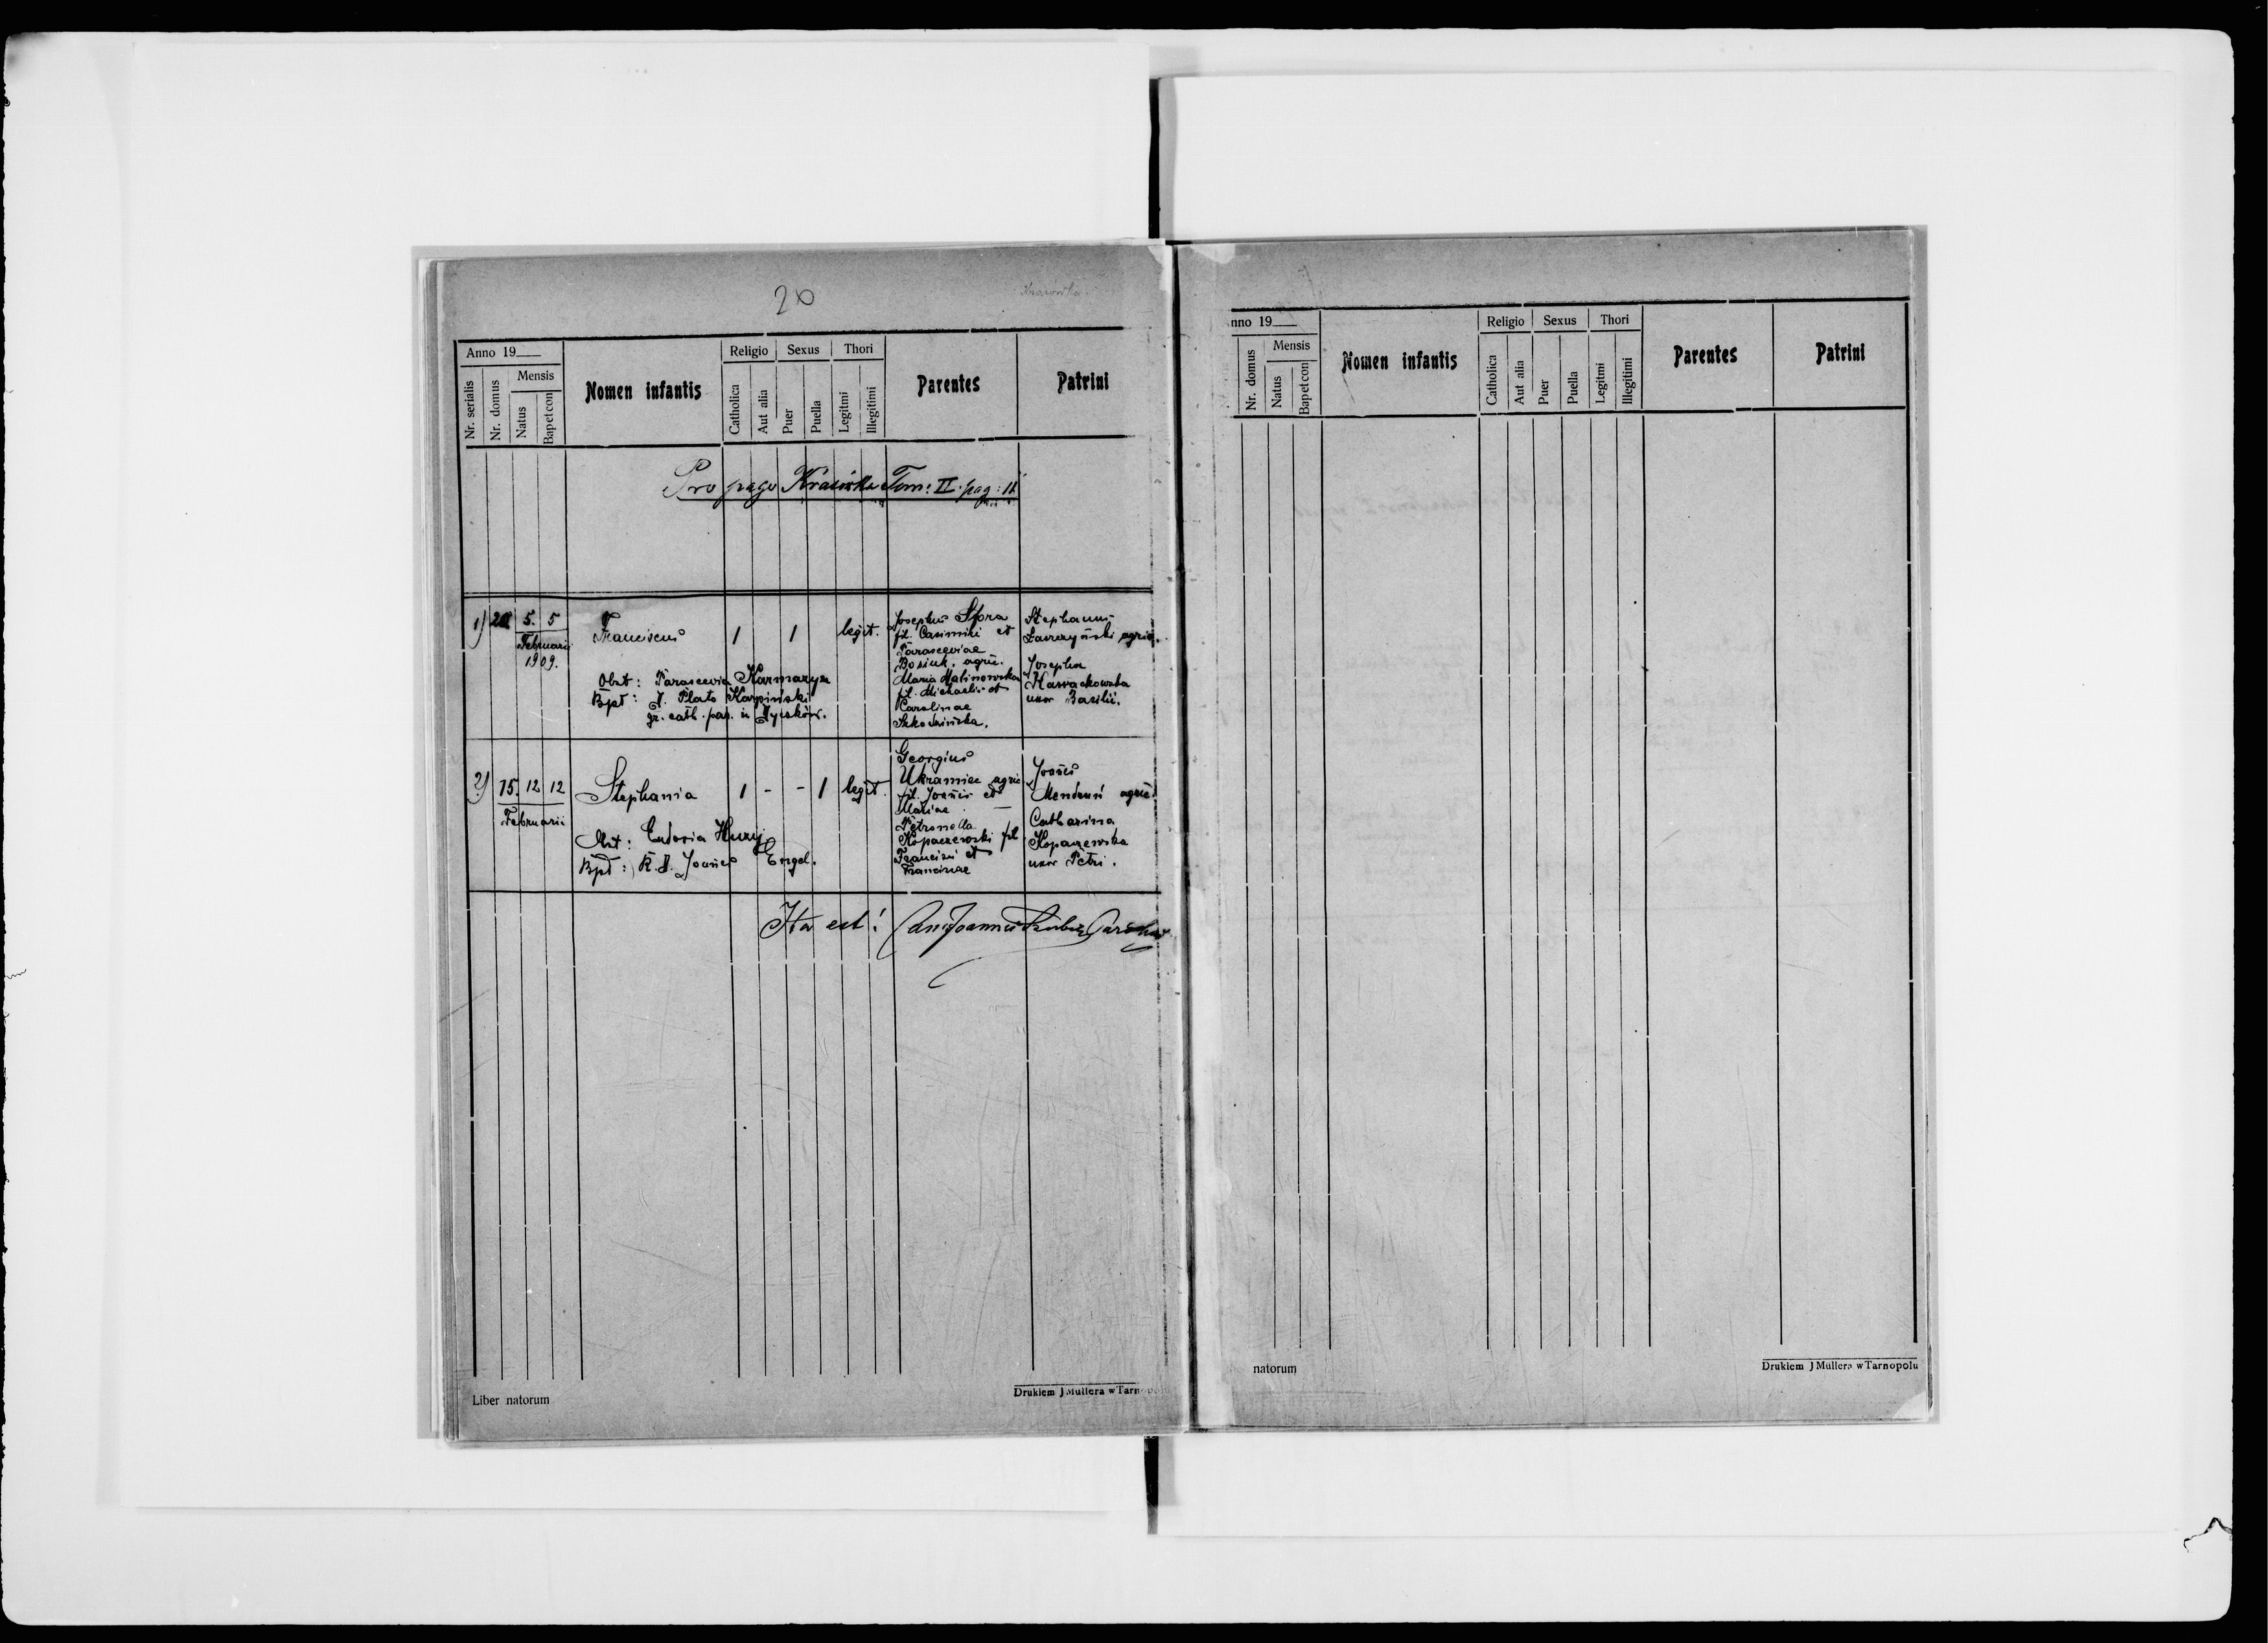 20
Krasówka
Anno 19
Nr. serialis
Nr. domus
Mensis
Natus
Bap et con
Nomen infantis
Religio
Catholica
Aut alia
Sexus
Puer
Puella
Thori
Legitmi
Illegitimi
Parentes
Patrini
Pro pago Krasówka Tom: II. pag: 18
1) 5. 5
Februarii
1909.
Franciscus
1 1 legit.
Obst: Parascevia Karmaryn
Bpt: J. Plato Karpiński
gr. cath. par. in Myszków.
Josephus Sfora
fil. Casimiri et
Parasceviae
Bosiuk, agric.
Maria Malinowska
fil. Michaelis et
Carolinae
Stephanus
Ławryński agric.
Josepha
uxor Basilii.
2) 75. 12 12
Februarii
Stephania
1 - - 1 legit.
Obst: Eudoxia Huzij
Bpt: R. d. Joañes Engel.
Georgius
Ukrainiec agric
fil. Joañis et
Mariae
Petronella
Kopaczewski fil
Francisci et
Franciscae
Joañes
agric.
Catharina
Kopaczewska
uxor Petri.
Ita est!
Liber natorum
Drukiem J Mullera w Tarnopolu
nno 19
Nr. domus
Mensis
Natus
Bap et con
Nomen infantis
Religio
Catholica
Aut alia
Sexus
Puer
Puella
Thori
Legitmi
Illegitimi
Parentes
Patrini
natorum
Drukiem J Mullera w Tarnopolu